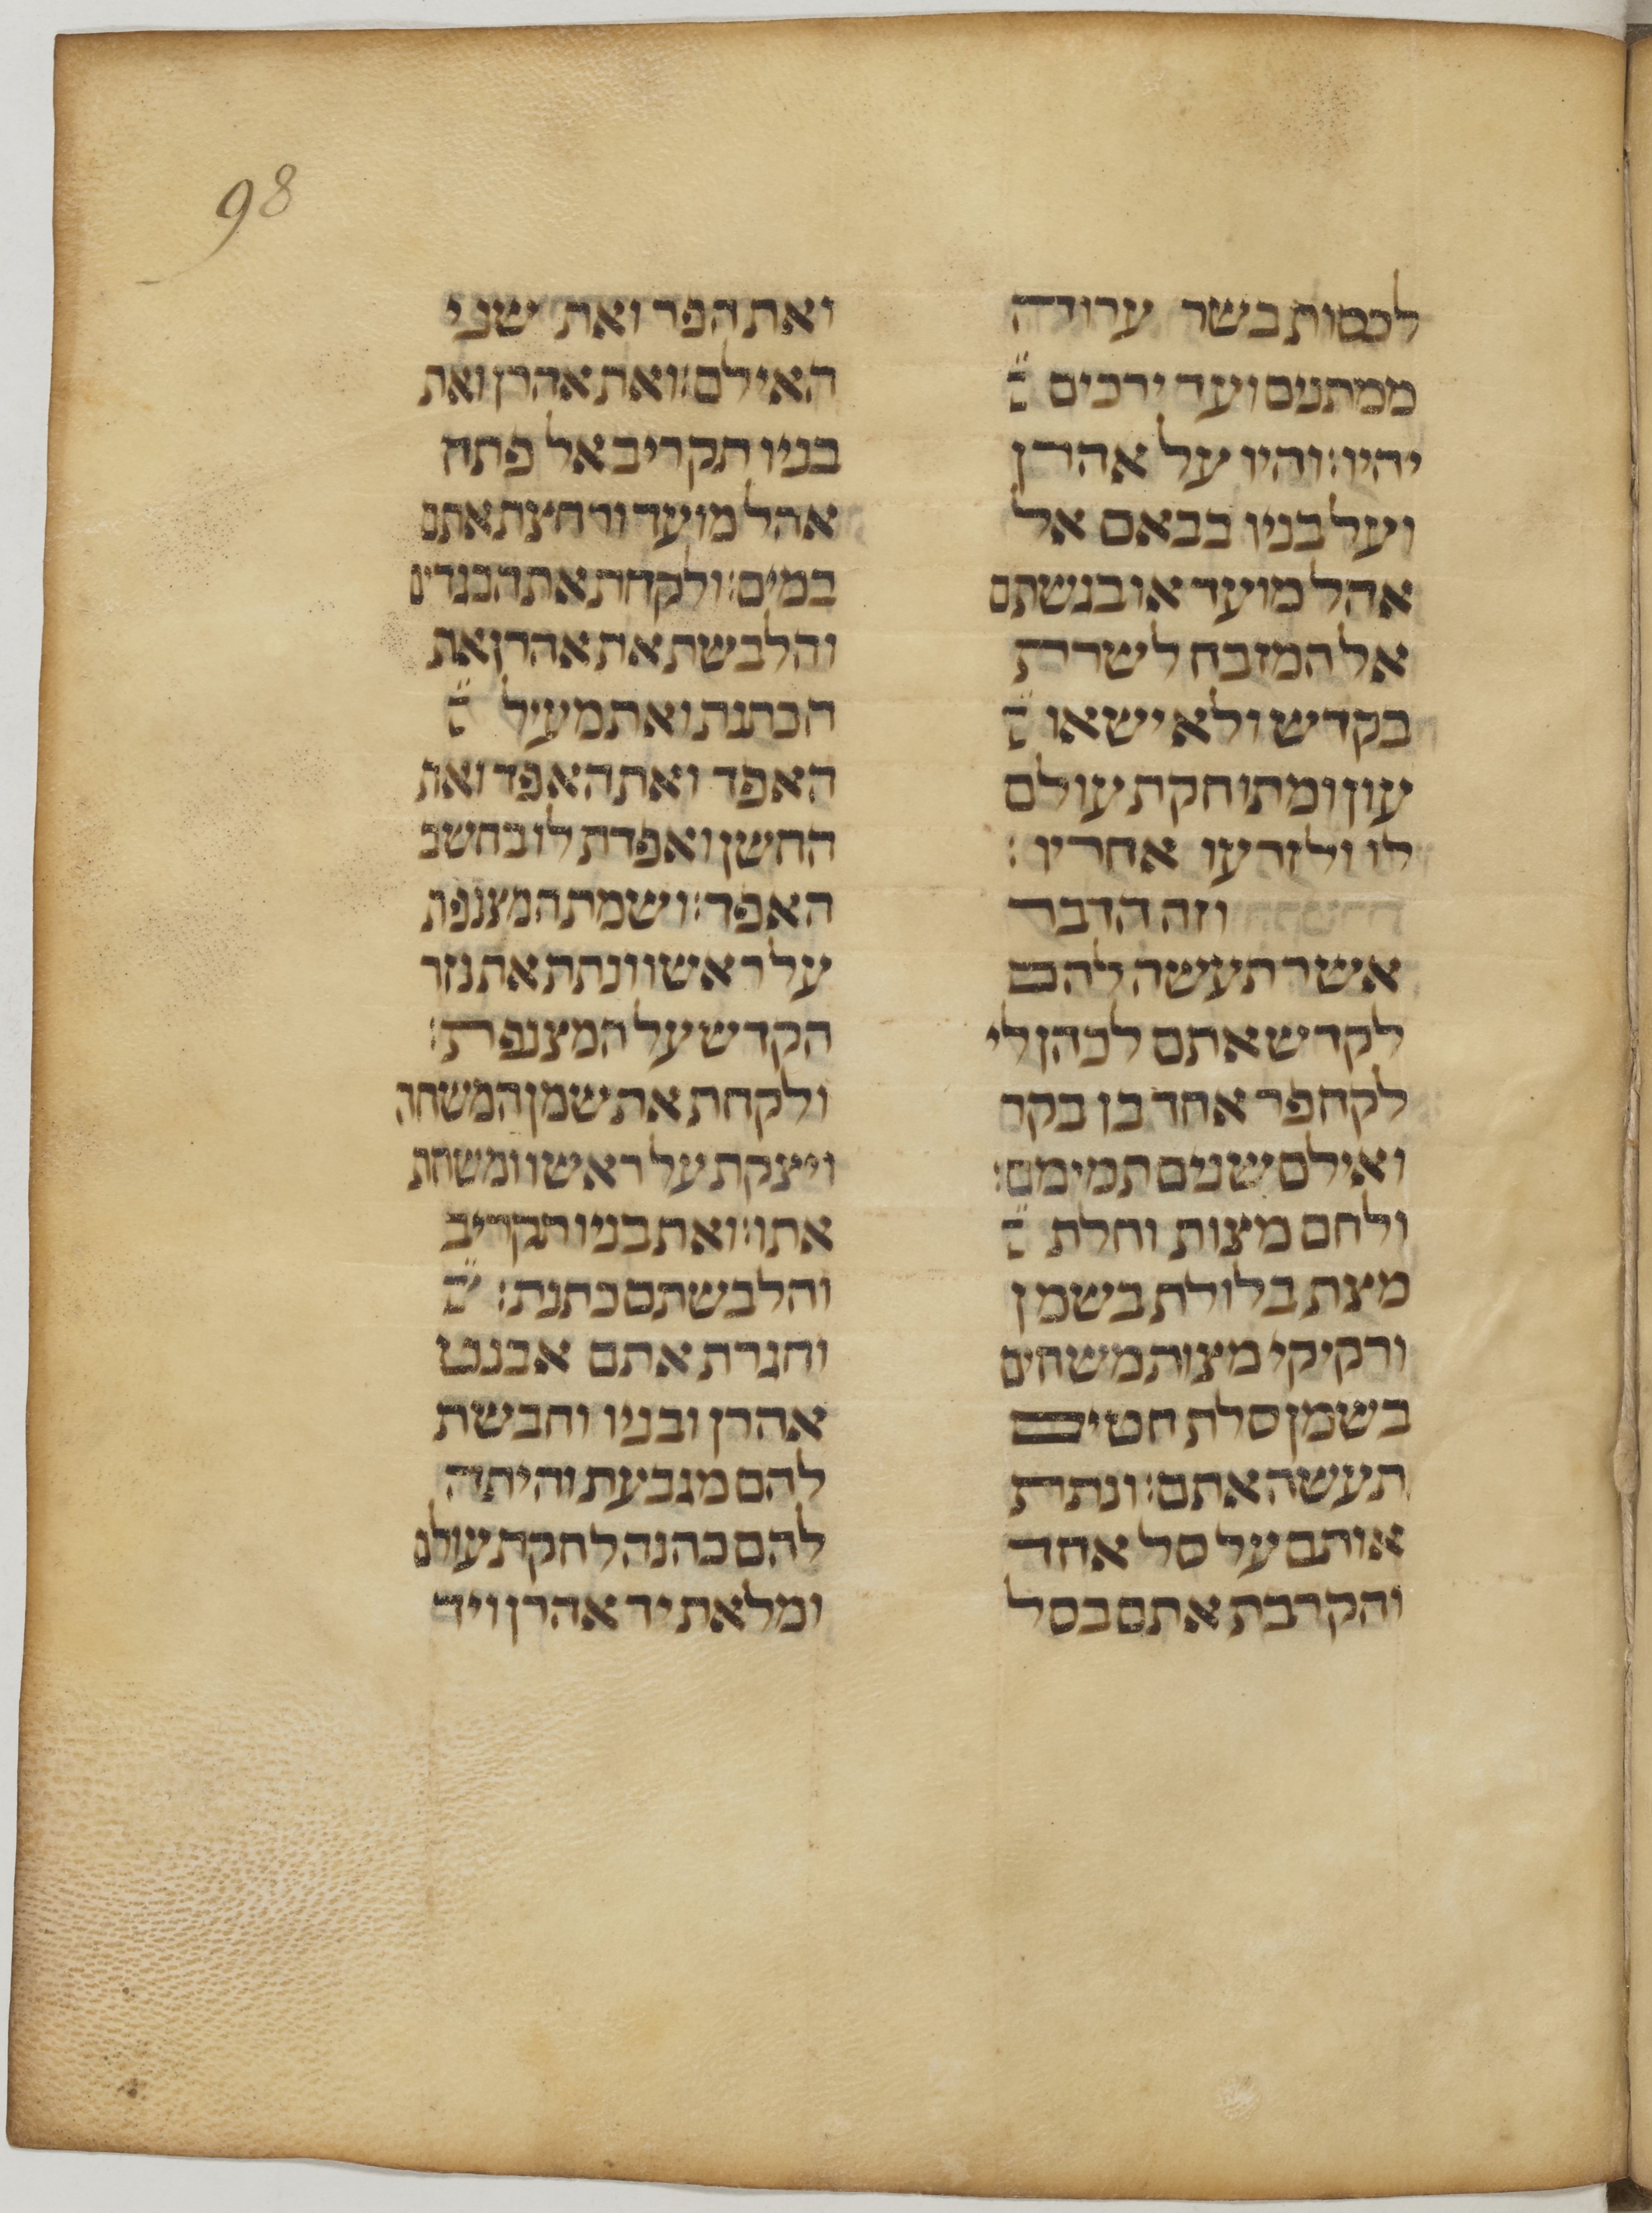 98
לכסות בשר ערוה
ממתנים ועד ירכים
יהיו: והיו על אהרן
ועל בניו בבאם אל
אהל מועד או בגשתם
אל המזבח לשרת
בקדש ולא ישאו
עון ומתו חקת עולם
לו ולזרעו אחריו:
וזה הדבר
אשר תעשה להם
לקדש אתם לכהן לי
לקח פר אחד בן בקר
ואילם שנים תמימם:
ולחם מצות וחלת
מצת בלולת בשמן
ורקיקי מצות משחים
בשמן סלת חטים
תעשה אתם: ונתת
אותם על סל אחד
והקרבת אתם בסל
ואת הפר ואת שני
האילם: ואת אהרן ואת
בניו תקריב אל פתח
אהל מועד ורחצת אתם
במים: ולקחת את הבגדים
והלבשת את אהרן את
הכתנת ואת מעיל
האפד ואת האפד ואת
החשן ואפדת לו בחשב
האפד: ושמת המצנפת
על ראשו ונתת את נזר
הקדש על המצנפת:
ולקחת את שמן המשחה
ויצקת על ראשו ומשחת
אתו: ואת בניו תקריב
והלבשתם כתנת:
וחגרת אתם אבנט
אהרן ובניו וחבשת
להם מגבעת והיתה
להם כהנה לחקת עולם
ומלאת יד אהרן ויד